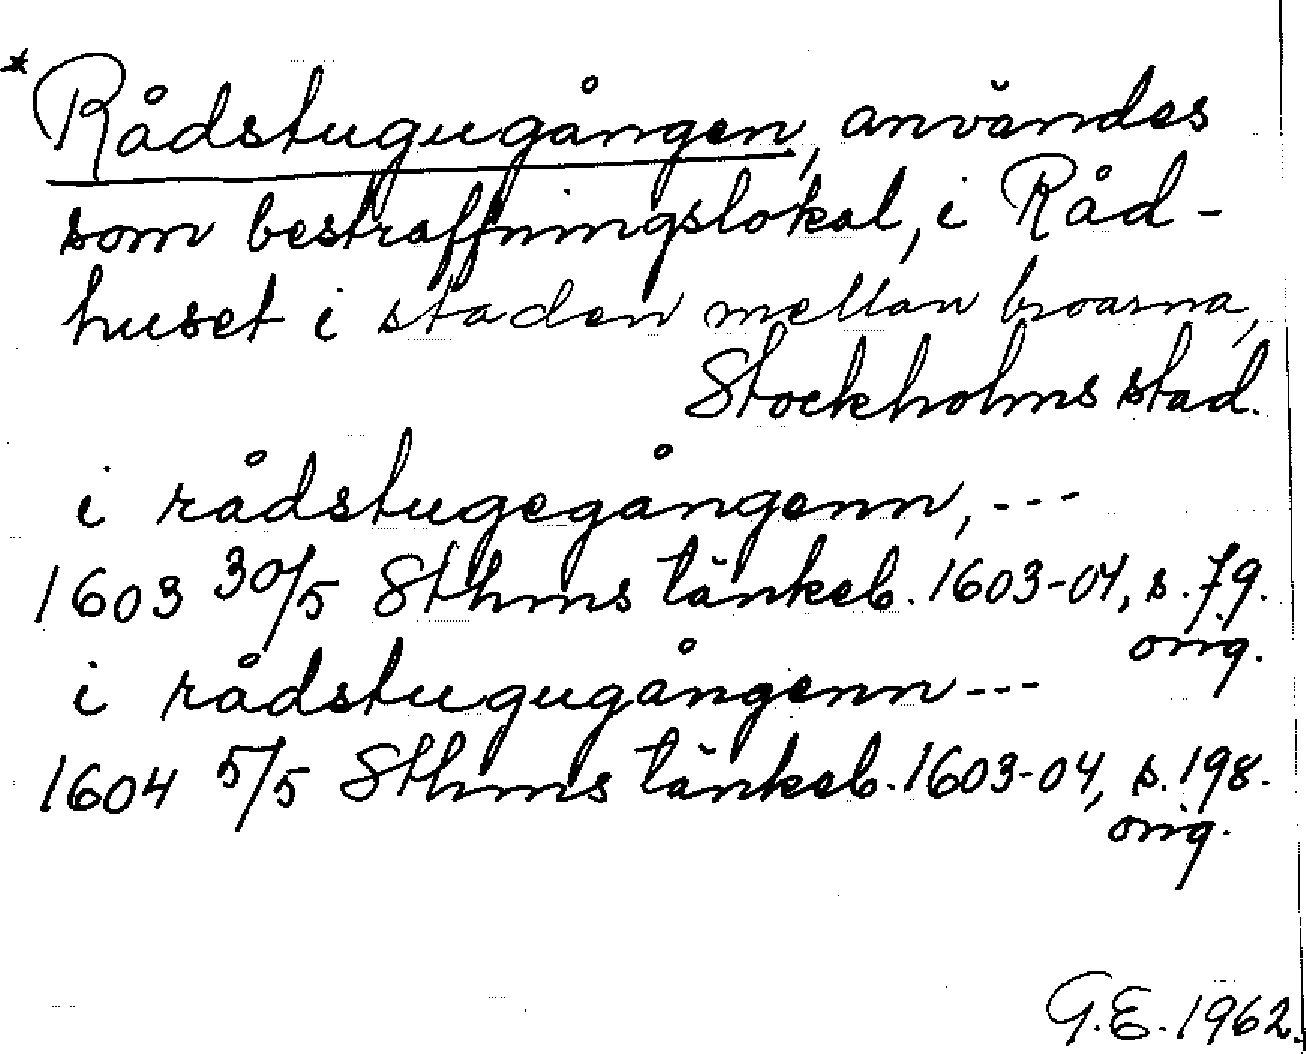 * Rådstugugången, användes
som bestraffningslokal, i Råd-
huset i staden mellan broarna,
Stockholms stad.
i rådstugegångenn, ---
1603 30/5 Sthms tänkeb. 1603-04, s. 79.
orig.
i rådstugugångenn ---
1604 5/5 Sthms tänkeb. 1603-04, s. 198.
orig.
G.E. 1962.